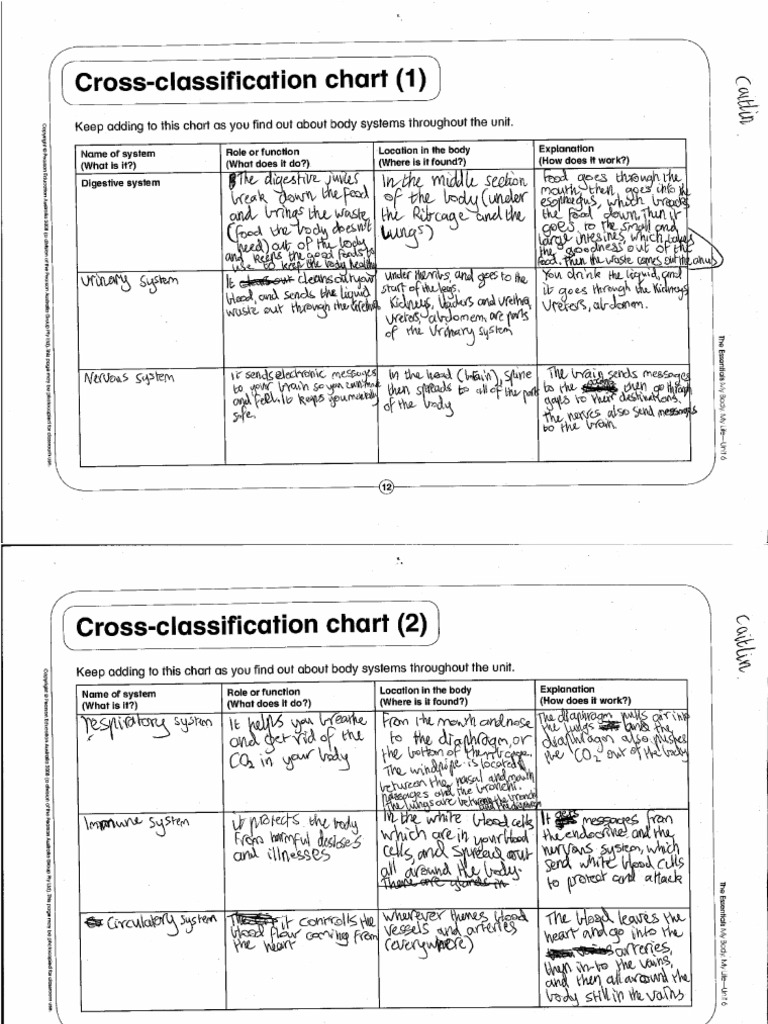 Cross-classification chart (1)
Caitlin.
Keep adding to this chart as you find out about body systems throughout the unit.
Name of system
(What is it?)
Role or function
(What does it do?)
Location in the body
(Where is it found?)
Explanation
(How does it work?)
Digestive system
The digestive juices
break down the food
and brings the waste
(food the body doesn't
need) out of the body
and keeps the good foods to
use to keep the body healthy
In the middle section
of the body (under
the Ribcage and the
Lungs)
Food goes through the
mouth then goes into the
esophagus, which breaks
the food down. Then it
goes to the small and
large intesines, which takes
the goodness out of the
food. Then the waste comes out the anus
Urinary system
It cleans out your
blood, and sends the liquid
waste out through the
under the ribs, and goes to the
start of the legs.
Kidneys, and urethra,
abdomem are parts
of the Urinary system
You drink the liquid, and
it goes through the Kidneys
Ureters, abdomen.
Nervous system
it sends electronic messages
to your brain so you can
and feel. It keeps you mentally
safe.
In the head (brain), spine
then spreads to all of the parts
of the body
The brain sends messages
to the then go through
gaps to their destinations.
The nerves also send messages
to the brain.
12
Copyright © Pearson Education Australia 2008 (a division of Pearson Australia Group Pty Ltd). This page may be photocopied for classroom use.
The Essentials My Body, My Life—Unit 6
Cross-classification chart (2)
Caitlin.
Keep adding to this chart as you find out about body systems throughout the unit.
Name of system
(What is it?)
Role or function
(What does it do?)
Location in the body
(Where is it found?)
Explanation
(How does it work?)
respiratory system
It helps you breathe
and get rid of the
CO2 in your body
From the mouth and nose
to the diaphragm, or
the bottom of the rib cage.
The windpipe is located
between the nasal and mouth
passages and the bronchi.
The lungs are between the bronchi
and the diaphragm
The diaphragm pulls air into
the lungs and the
diaphragm also pushes
the CO2 out of the body
Immune system
it protects the body
from harmful
and illnesses
In the white blood cells
which are in your blood
cells, and spread out
all around the body.
There are glands in
It gets messages from
the endocrine and the
nervous system, which
send white blood cells
to protect and attack
Circulatory system
it controlls the
blood flow coming from
the heart
wherever theres blood
vessels and arteries
(everywhere)
The blood leaves the
heart and go into the
arteries,
then in-to the vains,
and then all around the
body still in the vains
Copyright © Pearson Education Australia 2008 (a division of Pearson Australia Group Pty Ltd). This page may be photocopied for classroom use.
The Essentials My Body, My Life—Unit 6